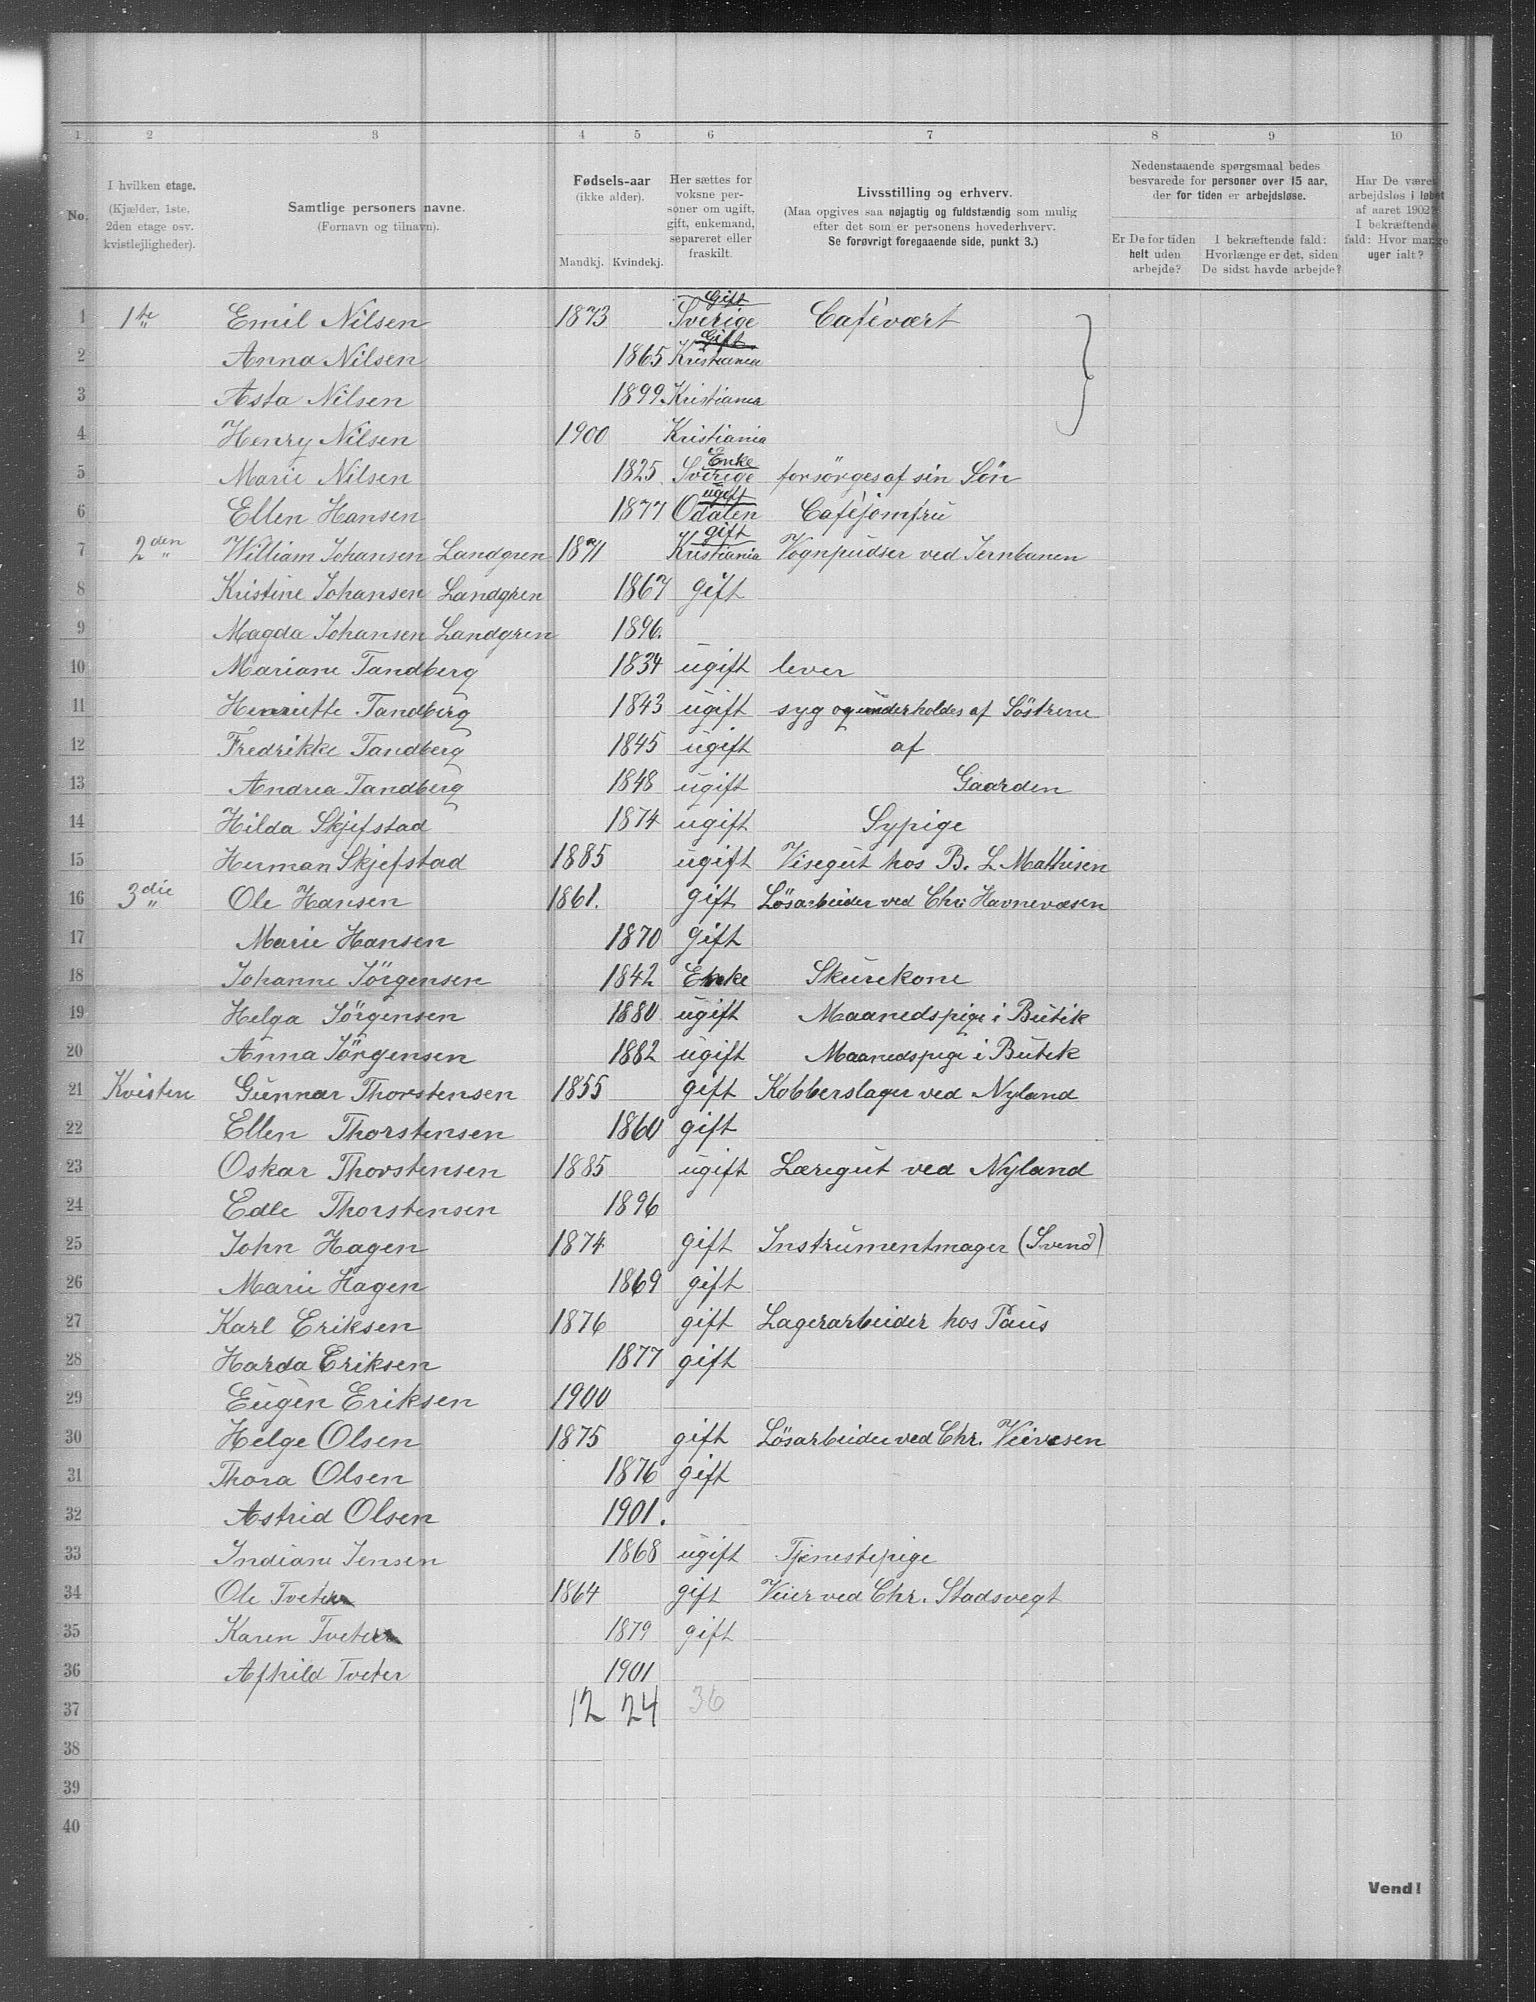 1 2 3 4 5 6 7 8 9 10
No.
I hvilken etage.
(Kjælder, 1ste,
2den etage osv.
kvistlejligheder).
Samtlige personers navne.
(Fornavn og tilnavn).
Fødsels-aar
(ikke alder).
Mandkj. Kvindekj.
Her sættes for
voksne per-
soner om ugift,
gift, enkemand,
separeret eller
fraskilt.
Livsstilling og erhverv.
(Maa opgives saa nøjagtig og fuldstændig som mulig
efter det som er personens hovederhverv.
Se forøvrigt foregaaende side, punkt 3.)
Nedenstaaende spørgsmaal bedes
besvarede for personer over 15 aar,
der for tiden er arbejdsløse.
Er De for tiden
helt uden
arbejde?
I bekræftende fald:
Hvorlænge er det, siden
De sidst havde arbejde?
Har De været
arbejdsløs i løbet
af aaret 1902?
I bekræftende
fald: Hvor mange
uger ialt?
Gift
1 1te Emil Nilsen 1873 Sverige Cafévært
Gift
2 Anna Nilsen 1865 Kristiania
3 Asta Nilsen 1899 Kristiania
4 Henry Nilsen 1900 Kristiania
Enke
5 Marie Nilsen 1825 Sverige forsörges af sin Sön
ugift
6 Ellen Hansen 1877 Odalen Caféjomfru
gift
7 2den William Johansen Landgren 1871 Kristiania Vognpudser ved Jernbanen
8 Kristine Johansen Landgren 1867 gift
9 Magda Johansen Landgren 1896.
10 Mariane Tandberg 1834 ugift lever
11 Henriette Tandberg 1843 ugift syg og underholdes af Söstrene
12 Fredrikke Tandberg 1845 ugift af
13 Andrea Tandberg 1848 ugift Gaarden
14 Hilda Skjefstad 1874 ugift Sypige
15 Herman Skjefstad 1885 ugift Visegut hos B. L Mathisen
16 3die Ole Hansen 1861. gift Lösarbeider ved Chr. Havnevæsen
17 Marie Hansen 1870 gift
18 Johanne Jörgensen 1842 Enke Skurekone
19 Helga Jörgensen 1880 ugift Maanedspige i Butik
20 Anna Jörgensen 1882 ugift Maanedspige i Butik
21 Kvisten Gunnar Thorstensen 1855 gift Kobberslager ved Nyland
22 Ellen Thorstensen 1860 gift
23 Oskar Thorstensen 1885 ugift Læregut ved Nyland
24 Edle Thorstensen 1896
25 John Hagen 1874 gift Instrumentmager (Svend)
26 Marie Hagen 1869 gift
27 Karl Eriksen 1876 gift Lagerarbeider hos Paus
28 Harda Eriksen 1877 gift
29 Eugen Eriksen 1900
30 Helge Olsen 1875 gift Lösarbeider ved Chr. Veivesen
31 Thora Olsen 1876 gift
32 Astrid Olsen 1901.
33 Indiane Jensen 1868 ugift Tjenestepige
34 Ole Tveter 1864 gift Veier ved Chr. Stadsvegt
35 Karen Tveter 1879 gift
36 Afhild Tveter 1901
37 12 24 36
38
39
40
Vend!